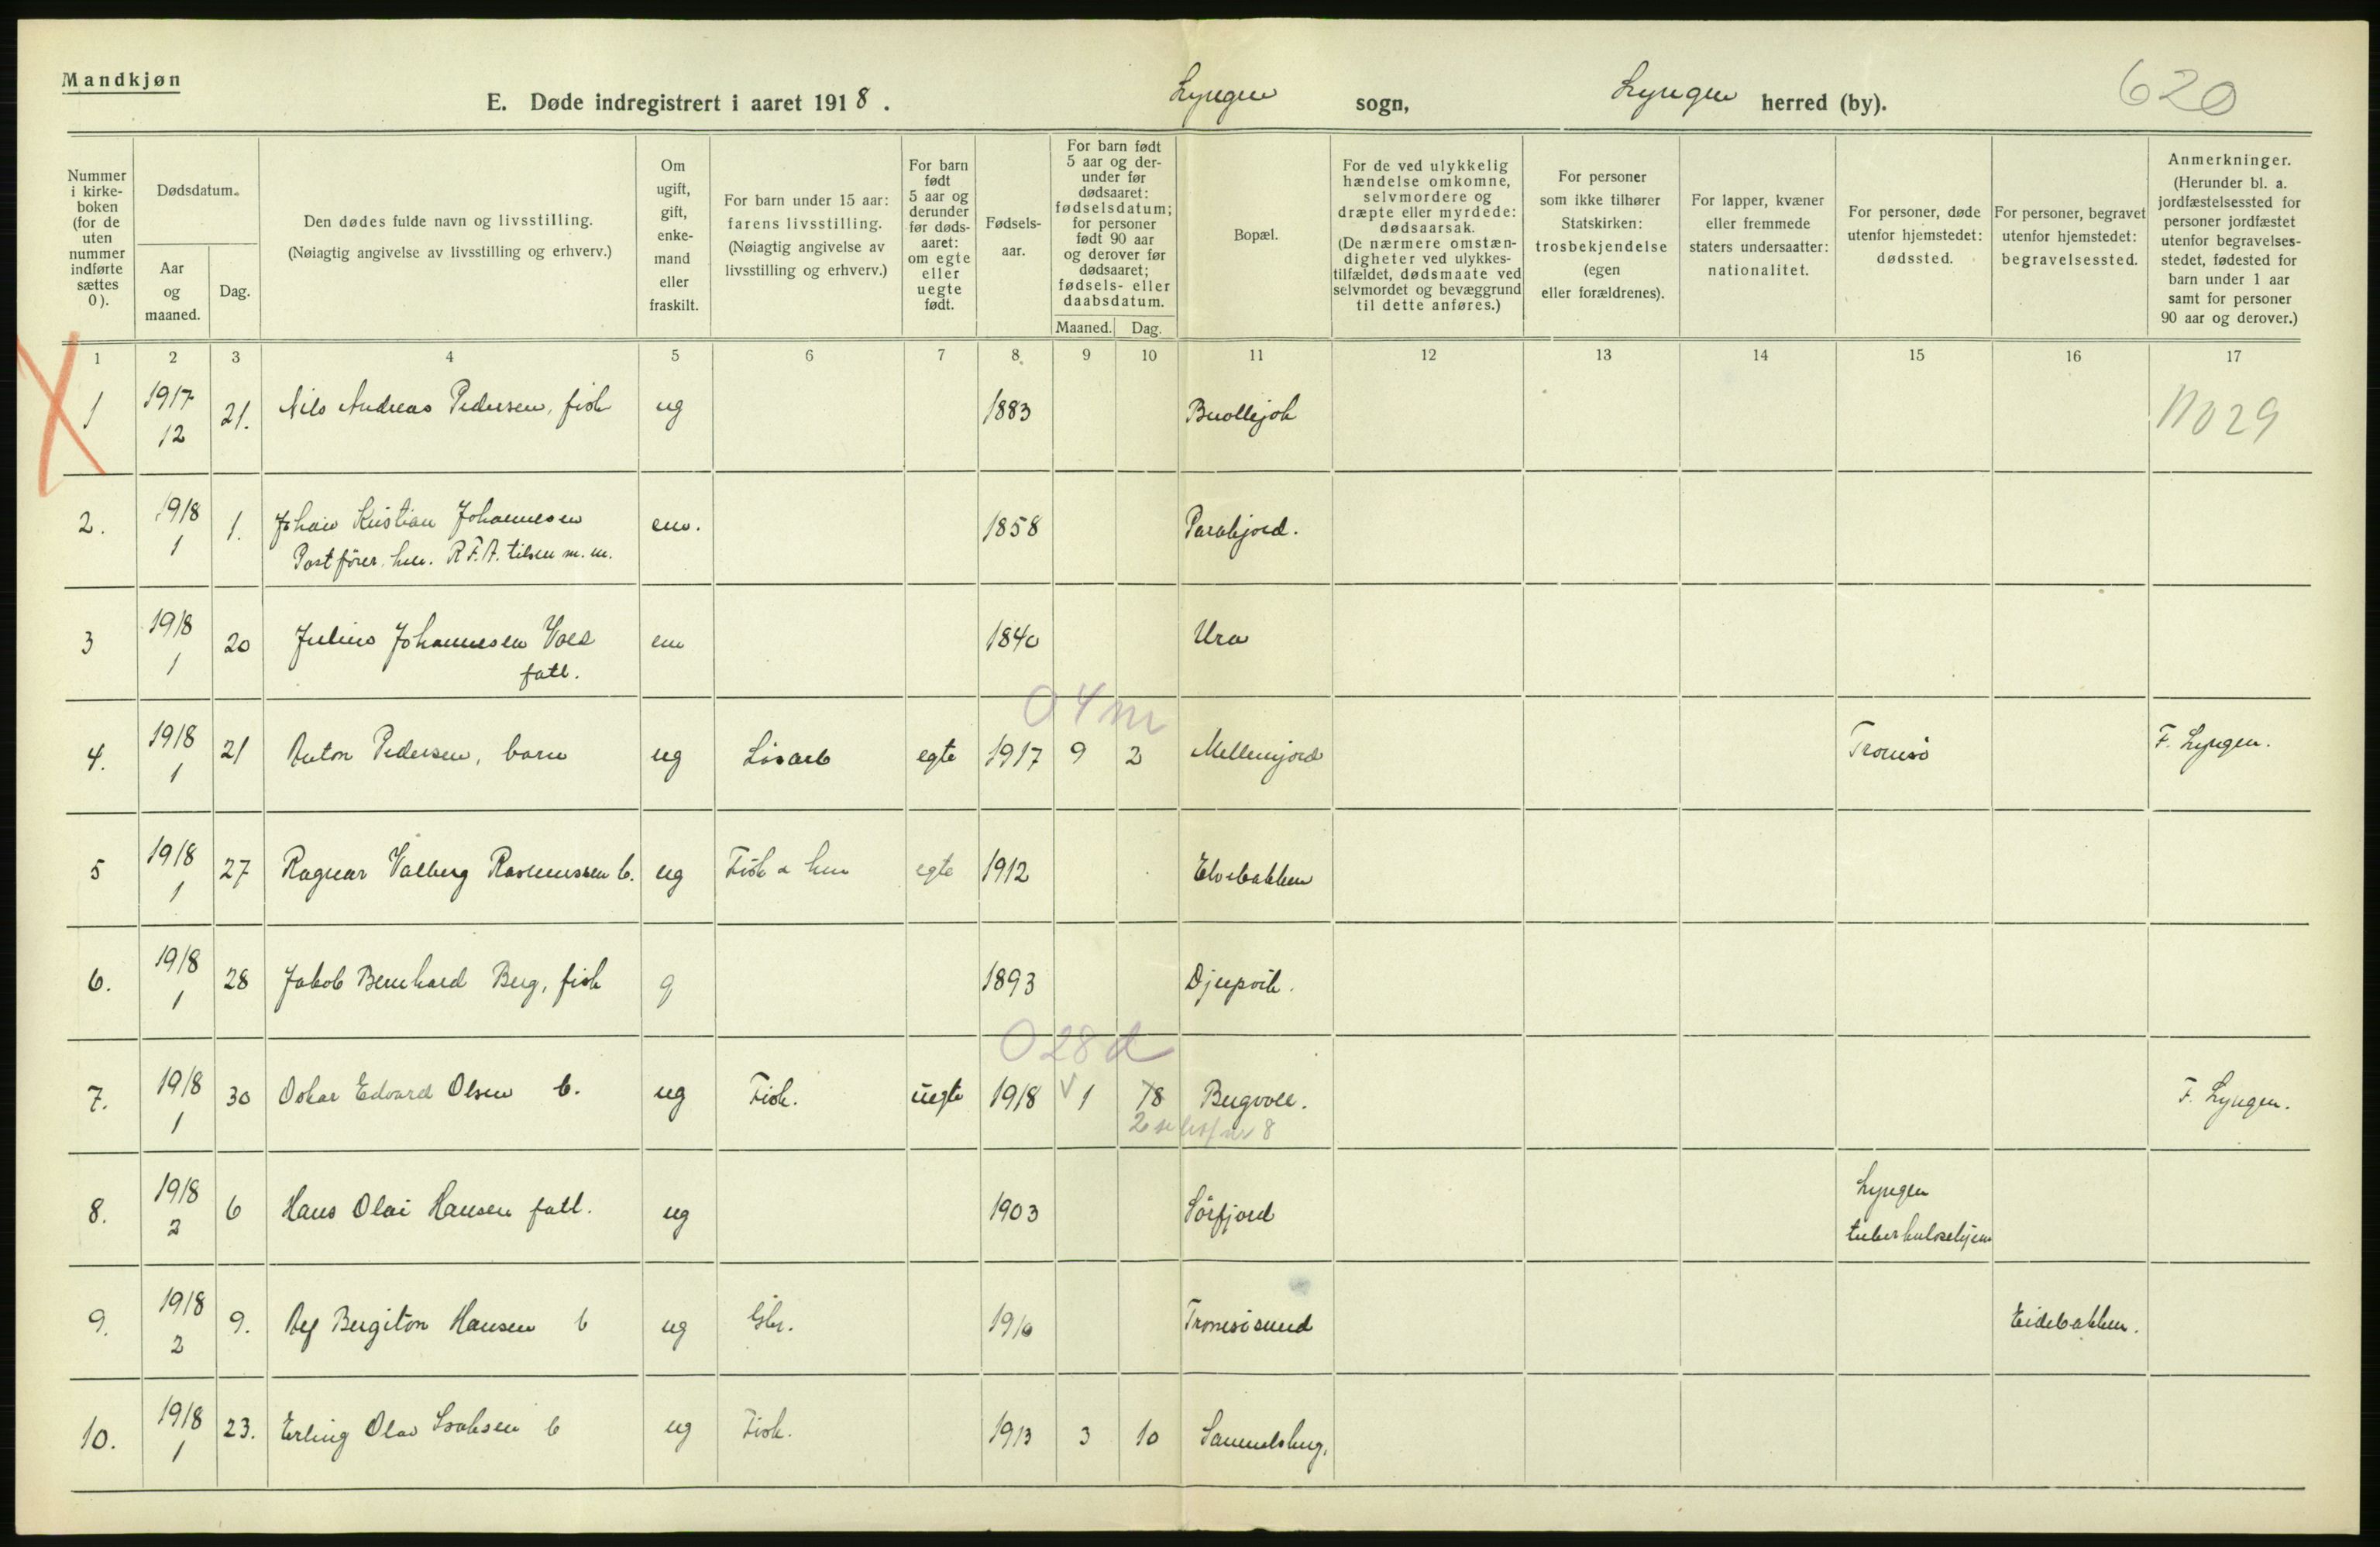 Mandkjøn
E. Døde indregistrert i aaret 1918. Lyngen sogn, Lyngen herred (by). 620
Nummer
i kirke-
boken
(for de
uten
nummer
indførte
sættes
0).
Dødsdatum.
Aar
og
maaned.
Dag.
Den dødes fulde navn og livsstilling.
(Nøiagtig angivelse av livsstilling og erhverv.)
Om
ugift,
gift,
enke-
mand
eller
fraskilt.
For barn under 15 aar:
farens livsstilling.
(Nøiagtig angivelse av
livsstilling og erhverv.)
For barn
født
5 aar og
derunder
før døds-
aaret:
om egte
eller
uegte
født.
Fødsels-
aar.
For barn født
5 aar og der-
under før
dødsaaret:
fødselsdatum;
for personer
født 90 aar
og derover før
dødsaaret;
fødsels- eller
daabsdatum.
Maaned. Dag.
Bopæl.
For de ved ulykkelig
hændelse omkomne,
selvmordere og
dræpte eller myrdede:
dødsaarsak.
(De nærmere omstæn-
digheter ved ulykkes-
tilfældet, dødsmaate ved
selvmordet og bevæggrund
til dette anføres.)
For personer
som ikke tilhører
Statskirken:
trosbekjendelse
(egen
eller forældrenes).
For lapper, kvæner
eller fremmede
staters undersaatter:
nationalitet.
For personer, døde
utenfor hjemstedet:
dødssted.
For personer, begravet
utenfor hjemstedet:
begravelsessted.
Anmerkninger.
(Herunder bl. a.
jordfæstelsessted for
personer jordfæstet
utenfor begravelses-
stedet, fødested for
barn under 1 aar
samt for personer
90 aar og derover.)
1 2 3 4 5 6 7 8 9 10 11 12 13 14 15 16 17
1 1917 12 21. Nils Andreas Pedersen, fisk ug 1883 Buollejok 11029
2. 1918 1 1. Johan Kristian Johannesen em. 1858 Parakjord.
Postfører, hm. R.F.A. tilsm m.m.
3 1918 1 20 Julius Johannesen Vold em 1840 Ura
fatl.
0 4 m
4. 1918 1 21 Anton Pedersen, barn ug Løsarb egte 1917 9 2 Mellemjord Tromsø F. Lyngen.
5 1918 1 27 Ragnar Valberg Rasmussen b. ug Fisk & hm egte 1912 Elvebakken
6. 1918 1 28 Jakob Bernhard Berg, fisk g 1893 Djupvik.
0 28 d
7. 1918 1 30 Oskar Edvard Olsen b. ug Fisk. uegte 1918 1 8 Bergvoll. F. Lyngen.
8. 1918 2 6 Hans Olai Hansen fatl. ug 1903 Sørfjord Lyngen
tuberkulosehjem
9. 1918 2 9. Bergiton Hansen b ug Gbr. 1910 Tromsøsund Eidebakken.
10. 1918 1 23. Erling Olav Isaksen b ug Fisk. 1913 3 10 Samuelsberg,